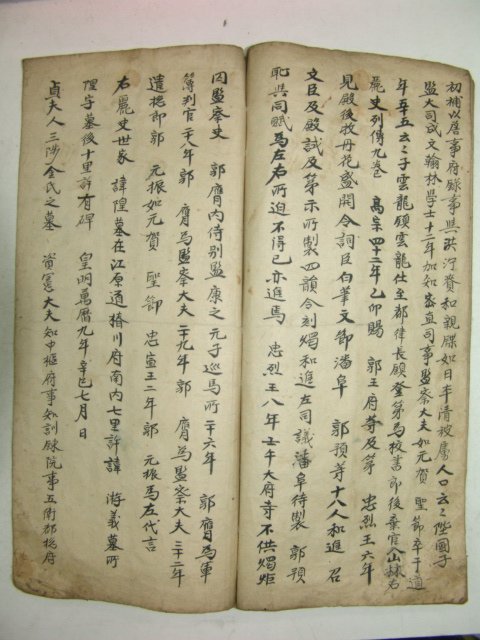 初補以詹事府錄事與洪泞賫和親牒如日本請被虜人口云云陞國子
監大司成文翰林學士十一年加知密直司事監察大夫如元賀 聖節卒于道
年五十五云云子雲龍鎭雲龍仕至都律長鎭登第爲校書郎後棄官入山林名
麗史列傳九卷 高宗四十二年乙卯賜 郭王府等及第 忠烈王六年
見殿後牧丹花盛開令詞臣白華文節潘阜 郭預等十八人和進 召
文臣及殿試及第示所製四韻令刻燭和進左司議潘阜待製 郭預
恥與同賦爲左右所迫不得已亦進焉 忠烈王八年壬午大府寺不供燭炬
囚監察史 郭膺內侍別監康之元子巡馬所二十六年 郭膺爲軍
簿判官二十八年郭 膺爲監察大夫二十九年郭 膺爲監察大夫三十二年
遣摠郎郭 元振如元賀 聖節 忠宣王二年郭 元振爲左代言
右麗史世家 諱隍墓在江原道 川府南內七里許諱 游義墓所
隍子墓後十里許有碑 皇明萬曆九年辛巳七月日
貞夫人三陟金氏之墓 資憲大夫知中樞府事知訓鍊院事五衛都摠府